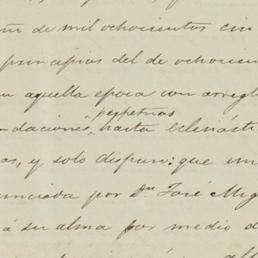 de mil ochocientos cin
principios del de ochocien
aquella epoca con arregl
perpetuas
ndaciones, hasta eclesiásti
as, y solo dispuso: que un
unciada por Dn José Mig
á su alma por medio d